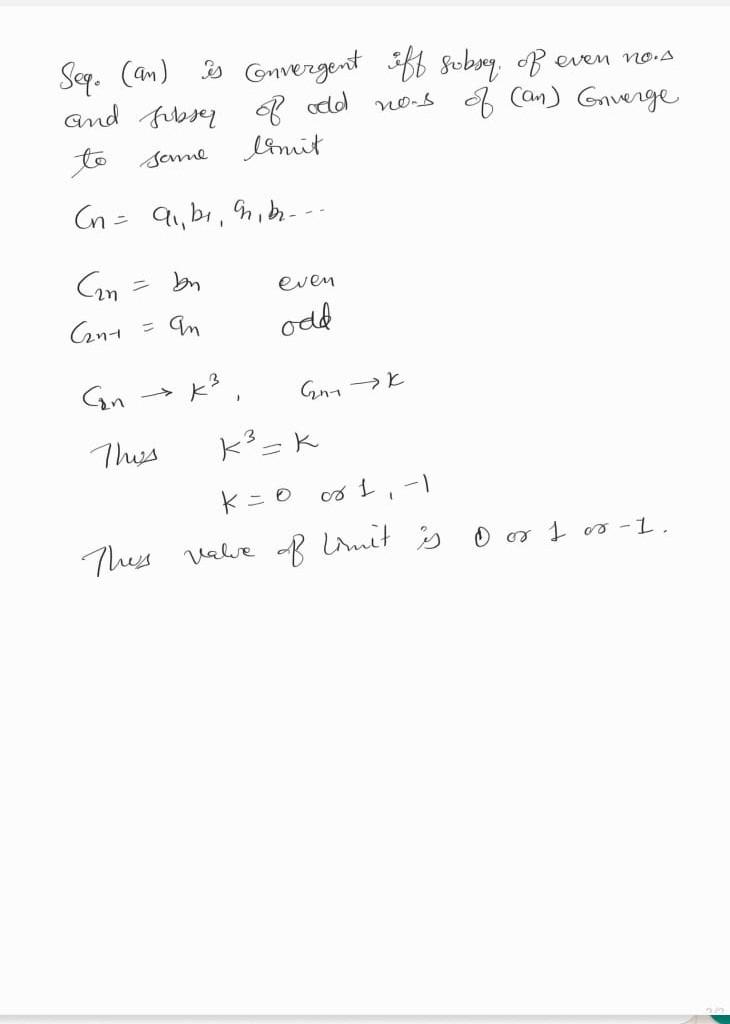 Seq. (an) is Convergent iff subseq. of even no.s
and subseq of odd no-s of (an) Converge
to same limit
Cn = a1, b1, a2, b2 - - -
C2n = bn even
C2n-1 = an odd
C2n → K³, C2n-1 → K
Thus K³ = K
K = 0 or 1, -1
Thus value of limit is 0 or 1 or -1.
2/2